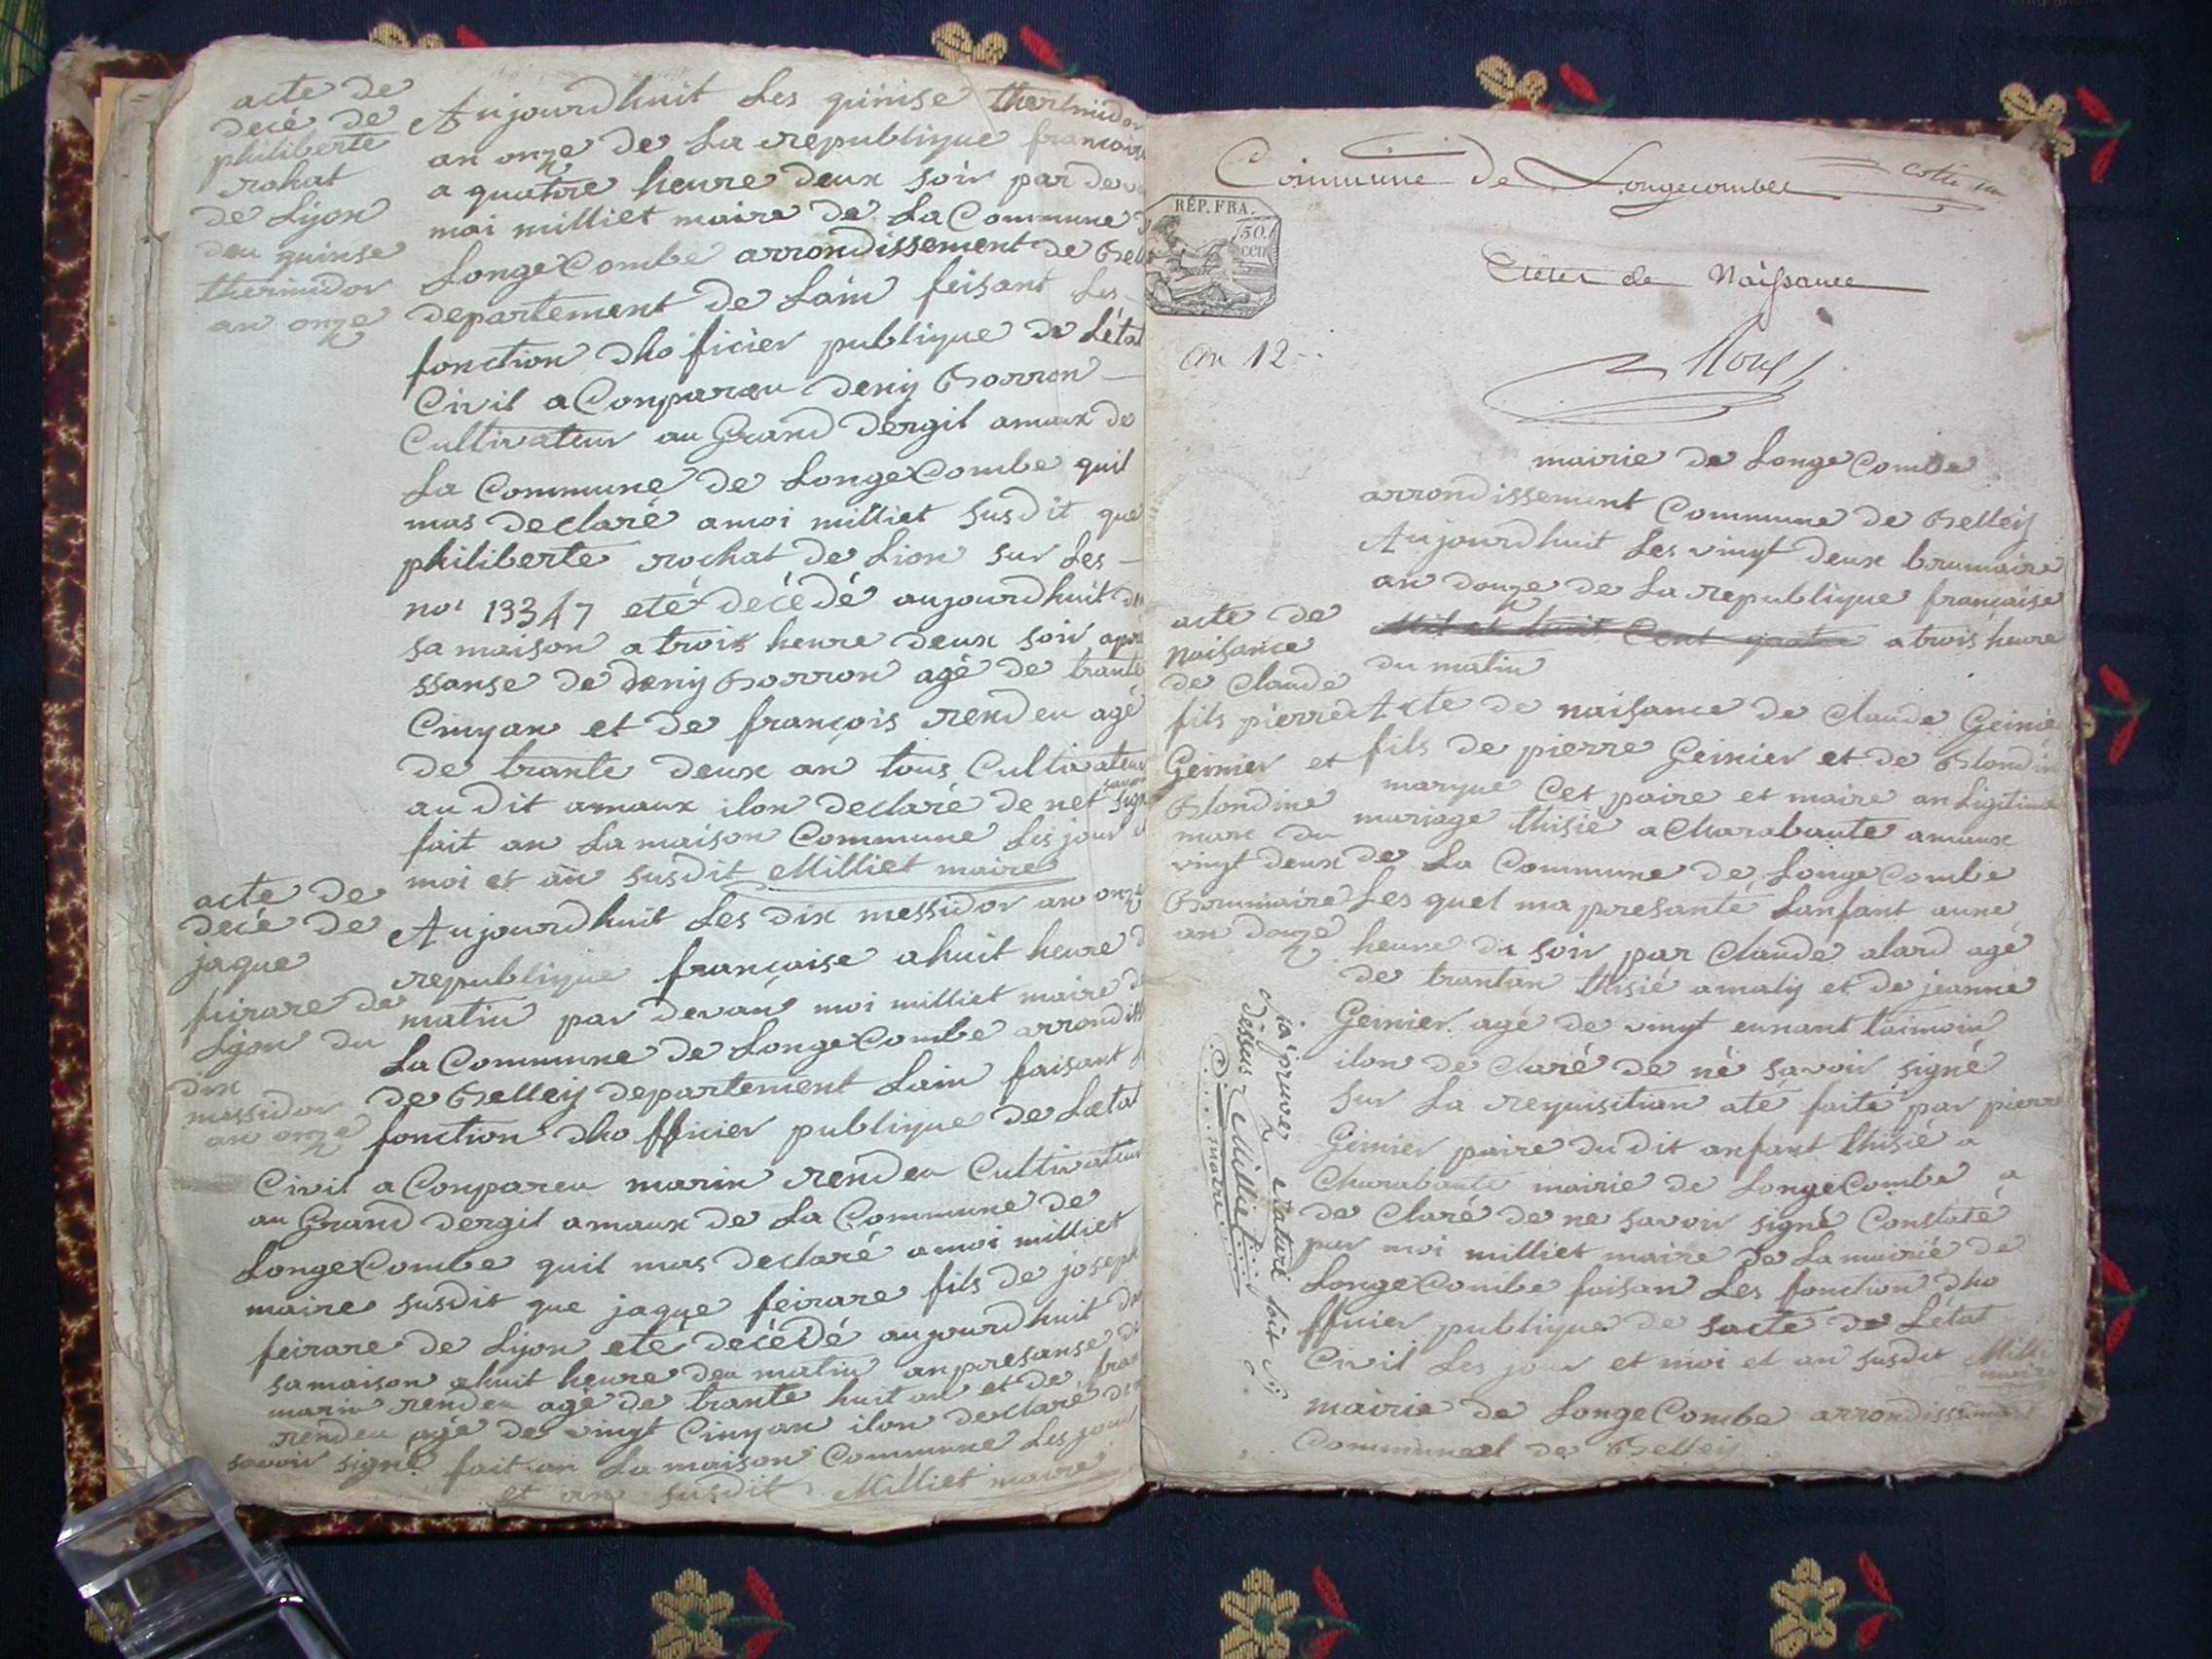 acte de
decé de
philiberte
rohat
de Lijon
deu quinse
thermidor
an onze
Aujourdhuit Les quinse thermidor
an onze de La republique francoise
a quatre heure deux soir par de
moi milliet maire de La Commune
LongeCombe arrondissement de Bel
departement de Lain feisant Les
fonction dho ficier publique de Létat
Civil a Conpareu denij Borron
Cultivateur au Grand dergit amaux de
La Commune de LongeCombe quil
mas declaré amoi milliet susdit que
philiberte rochat de Lion sur Les
no: 13347 eté décédé aujourdhuit
sa maison a trois heure deux soir apré
ssanse de denij Borron agé de trante
Cinqan et de françois rendeu agé
de trante deux an tous Cultivateur
au dit amaux ilon declaré de net savoir signé
fait an La maison Commune Les jour
moi et an susdit Milliet maire
acte de
decé de
jaque
feirare de
Lijon du
dix
messidor
an onze
Aujourdhuit Les dix messidor an onze
republique française a huit heure
matin par devan moi milliet maire
La Commune de LongeCombe arrondiss
de Belleij departement Lain faisant
fonction dho fficier publique de Lætat
Civil a Conpareu marin rendeu Cultivateur
au Grand dergit amaux de La Commune de
LongeCombe quil mas declaré amoi milliet
maire susdit que jaque feirare fils de joseph
feirare de Lijon eté décédé aujourdhuit
sa maison ahuit heure deu matin anpresanse
marin rendeu agé de trante huit an et de fran
rendeu agé de vingt Cinqan ilon declaré
savoir signé fait an La maison Commune Les jour
et an susdit Milliet maire
Commune de Longecombe
RÉP. FRA.
50.
cen
de Naissance
an 12
mairie de LongeCombe
arrondissement Commune de Belleij
Aujourdhuit Les vingt deux brumaire
an douze de La republique française
a trois heure
du matin
acte de
Naisance
de Claude
fils pierre
Geinier et
Blondine
marc du
vingt deux
Brumaire
an douze
Acte de naisance de Claude Geinié
fils de pierre Geinier et de Blondin
marque Cet paire et maire an Ligitime
mariage thisié a Charabaute amaux
de La Commune de LongeCombe
Les quel ma presanté Lanfant aune
heure du soir par Claude alard agé
de trantan thisié amalij et de jeanne
Geinier agé de vingt eunant taimoin
ilon de Claré de né savoir signé
Sur La requisitian até faité par pierre
Geinier paire du dit anfant thisié a
Charabaute mairie de LongeCombe a
de Claré de ne savoir signé Constaté
par moi milliet maire de La mairié de
LongeCombe faisan Les fonction dho
fficier publique de sacte de Létat
Civil Les jour et moi et an susdit Milli
maire
mairie de LongeCombe arrondissemant
Communal de Belleij
dessus Milliet
maire